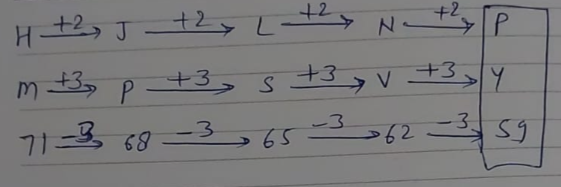 H +2 → J +2 → L +2 → N +2 → P
M +3 → P +3 → S +3 → V +3 → Y
71 -3 → 68 -3 → 65 -3 → 62 -3 → 59